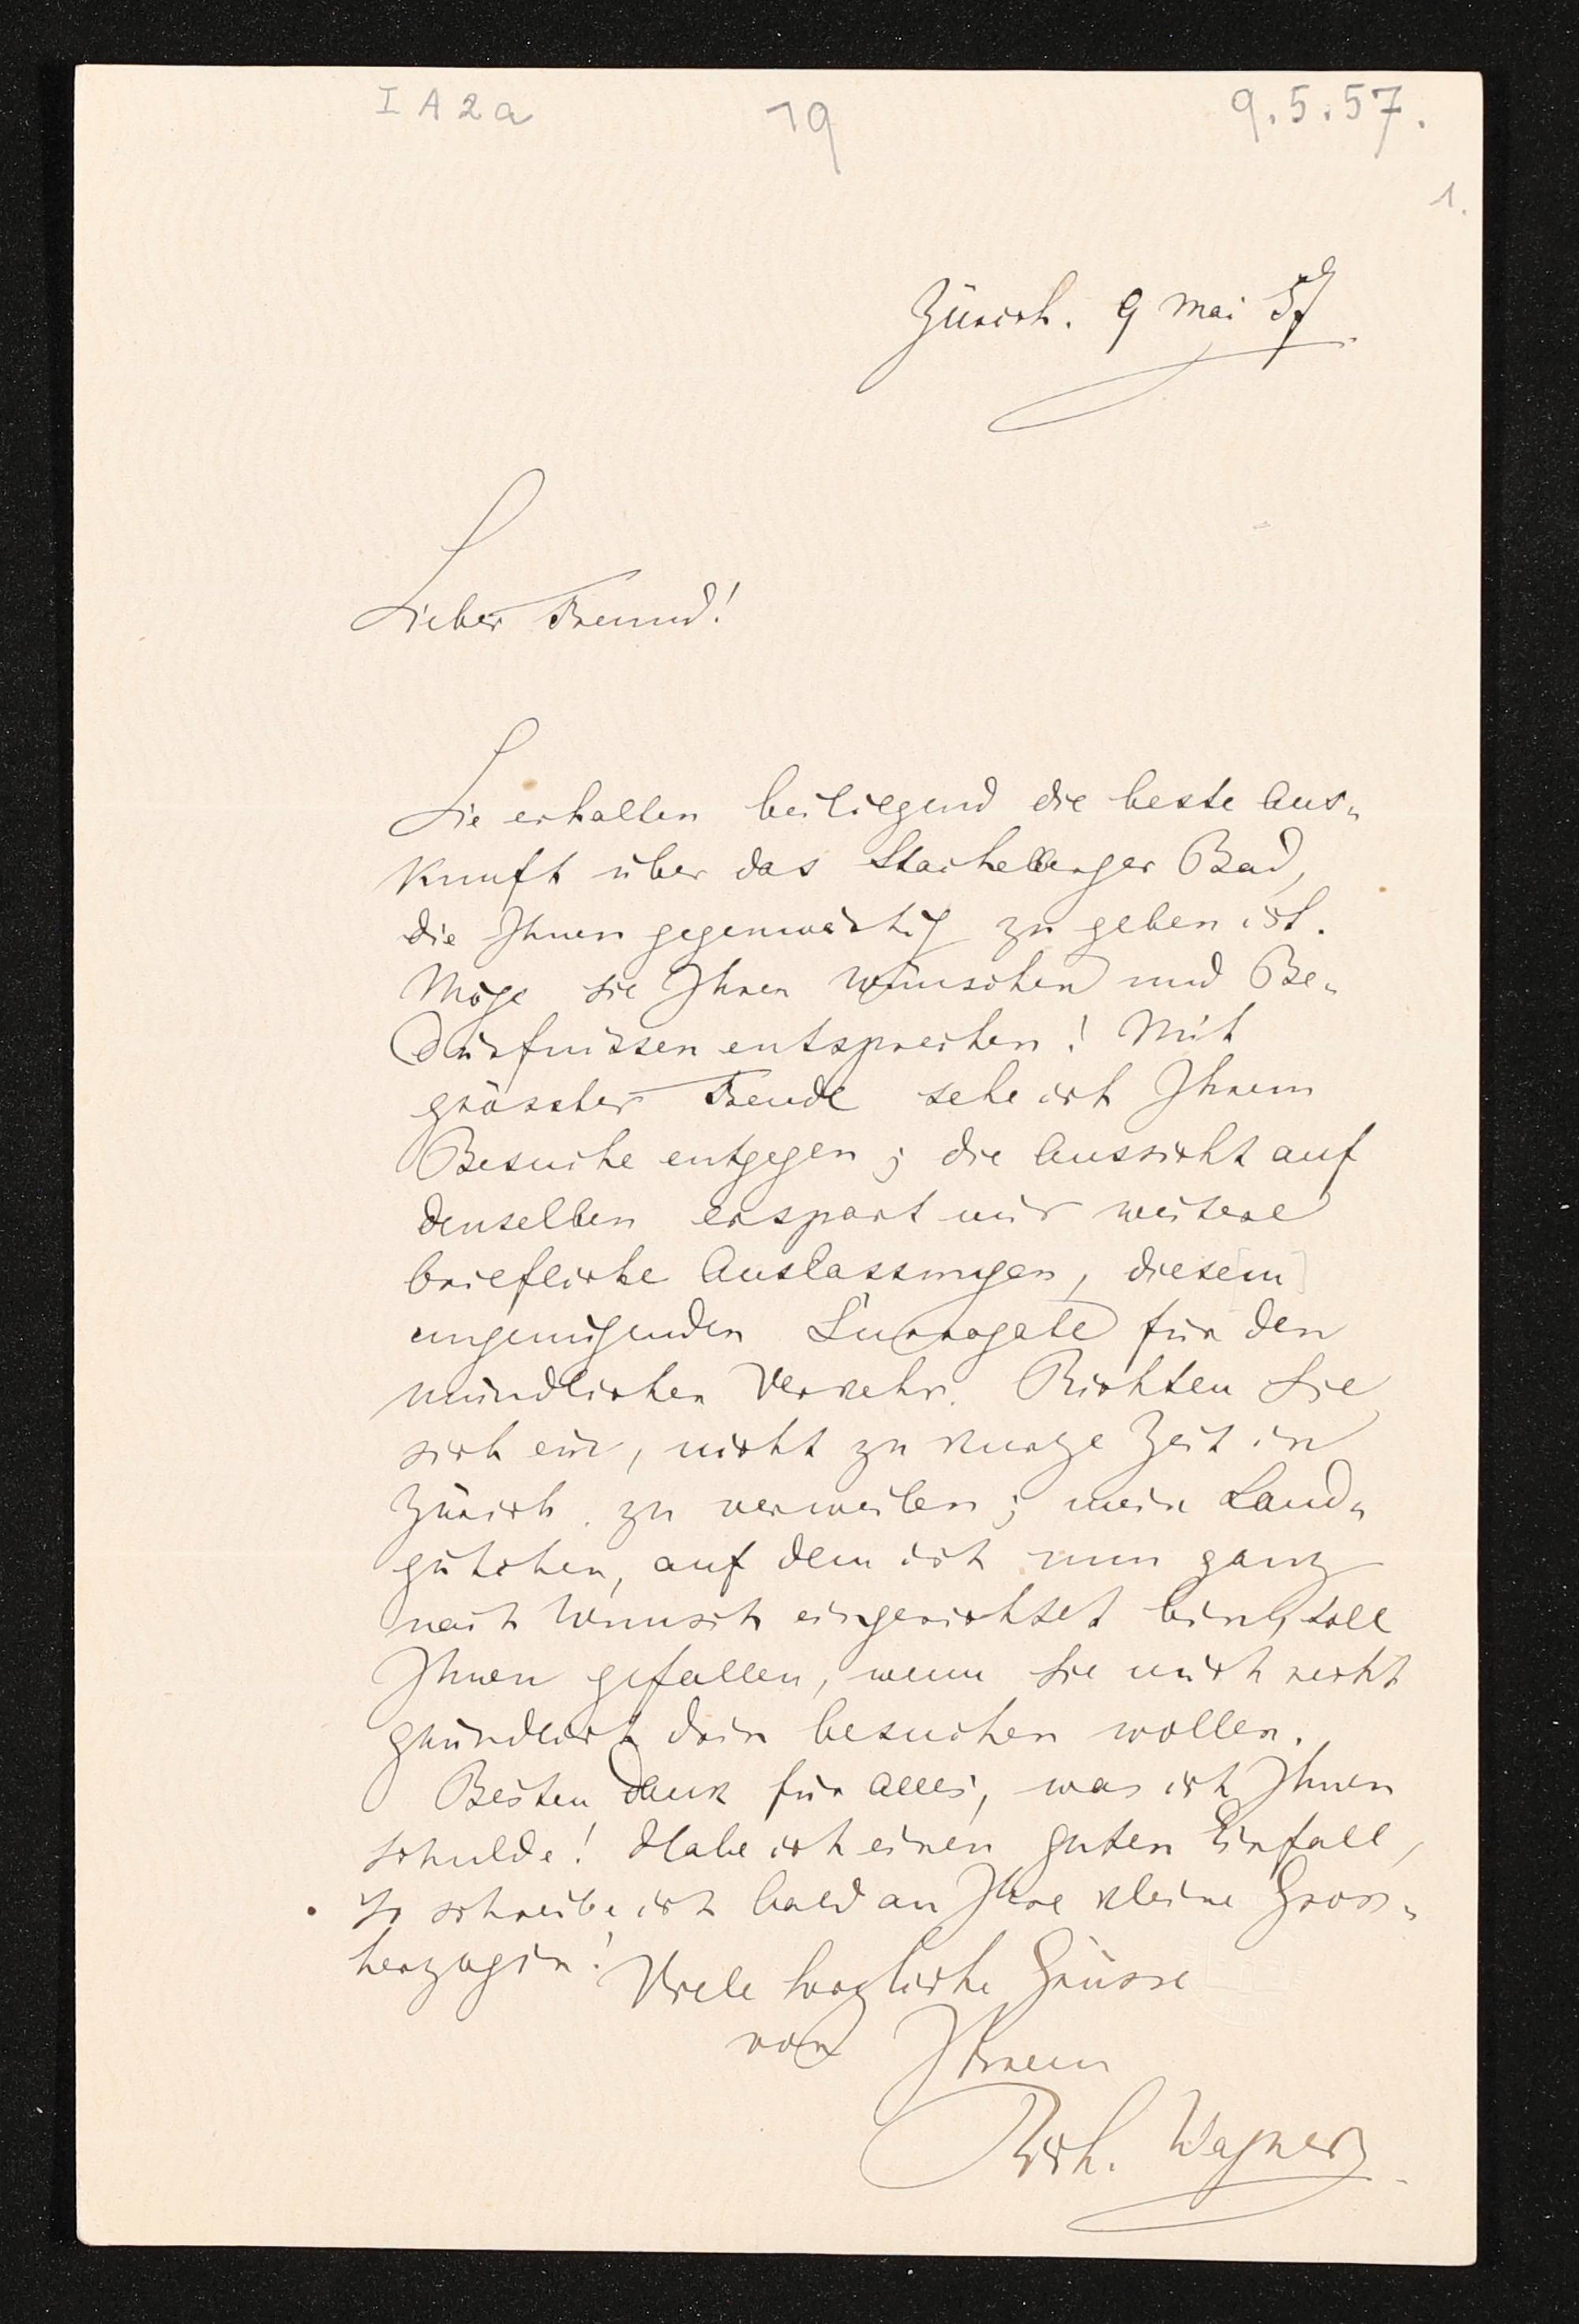 I A 2 a 19 9.5.57.
1.
Zürich. 9 Mai 57
Lieber Freund!
Sie erhalten beiliegend die beste Aus-
kunft über das Stachelberger Bad,
die Ihnen gegenwärtig zu geben ist.
Möge sie Ihren Wünschen und Be-
dürfnissen entsprechen! Mit
grösster Freude sehe ich Ihrem
Besuche entgegen; die Aussicht auf
denselben erspart mir weitere
briefliche Auslassungen, diesem
ungenügenden Surrogate für den
mündlichen Verkehr. Richten Sie
sich ein, nicht zu kurze Zeit in
Zürich zu verweilen; mein Land-
gütchen, auf dem ich nun ganz
nach Wunsch eingerichtet bin, soll
Ihnen gefallen, wenn Sie mich recht
gründlich drin besuchen wollen.
Besten Dank für Alles, was ich Ihnen
schulde! Habe ich einen guten Einfall,
so schreibe ich bald an Ihre kleine Gross-
herzogin! Viele herzliche Grüsse
von Ihrem
Rich. Wagner